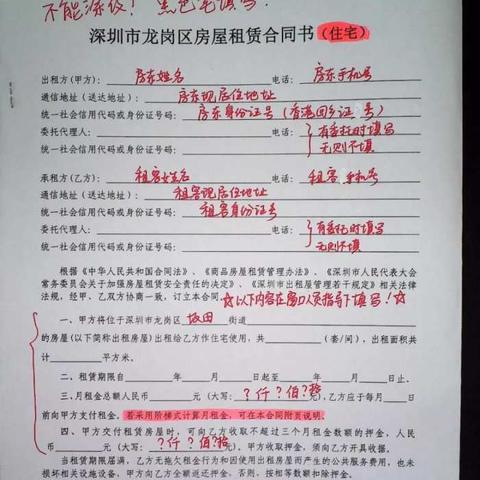 不能涂改！黑色笔填写！
深圳市龙岗区房屋租赁合同书（住宅）
出租方(甲方)：房东姓名 电话：房东手机号
通信地址（送达地址）：房东现居住地址
统一社会信用代码或身份证号码：房东身份证号（香港回乡证号）
委托代理人： 电话： 有委托时填写
统一社会信用代码或身份证号码： 无则不填
承租方(乙方)：租客姓名 电话：租客手机号
通信地址（送达地址）：租客现居住地址
统一社会信用代码或身份证号码：租客身份证号
委托代理人： 电话： 有委托时填写
统一社会信用代码或身份证号码： 无则不填
根据《中华人民共和国合同法》、《商品房屋租赁管理办法》、《深圳市人民代表大会
常务委员会关于加强房屋租赁安全责任的决定》、《深圳市出租屋管理若干规定》相关法律
法规，经甲、乙双方协商一致，订立本合同。☆以下内容在窗口人员指导下填写！☆
一、甲方将位于深圳市龙岗区坂田街道
的房屋(以下简称出租房屋)出租给乙方作住宅使用，共（套/间），出租面积共
计平方米。
二、租赁期限自 年 月 日起至 年 月 日止。
三、月租金总额人民币 元（大写：?仟?佰?拾），乙方应于每月 日
前向甲方支付租金。若采用阶梯式计算月租金，可在本合同附页说明。
四、甲方交付租赁房屋时，可向乙方收取不超过三个月租金数额的押金，人民
币 元（大写：?仟?佰?拾）。甲方收取押金，须向乙方开具收据。
当租赁期限届满，乙方无拖欠租金行为和因使用出租房屋而产生的公共服务费用，也未
损坏相关设施设备，甲方向乙方全额返还押金。否则，按相等数额扣除押金。